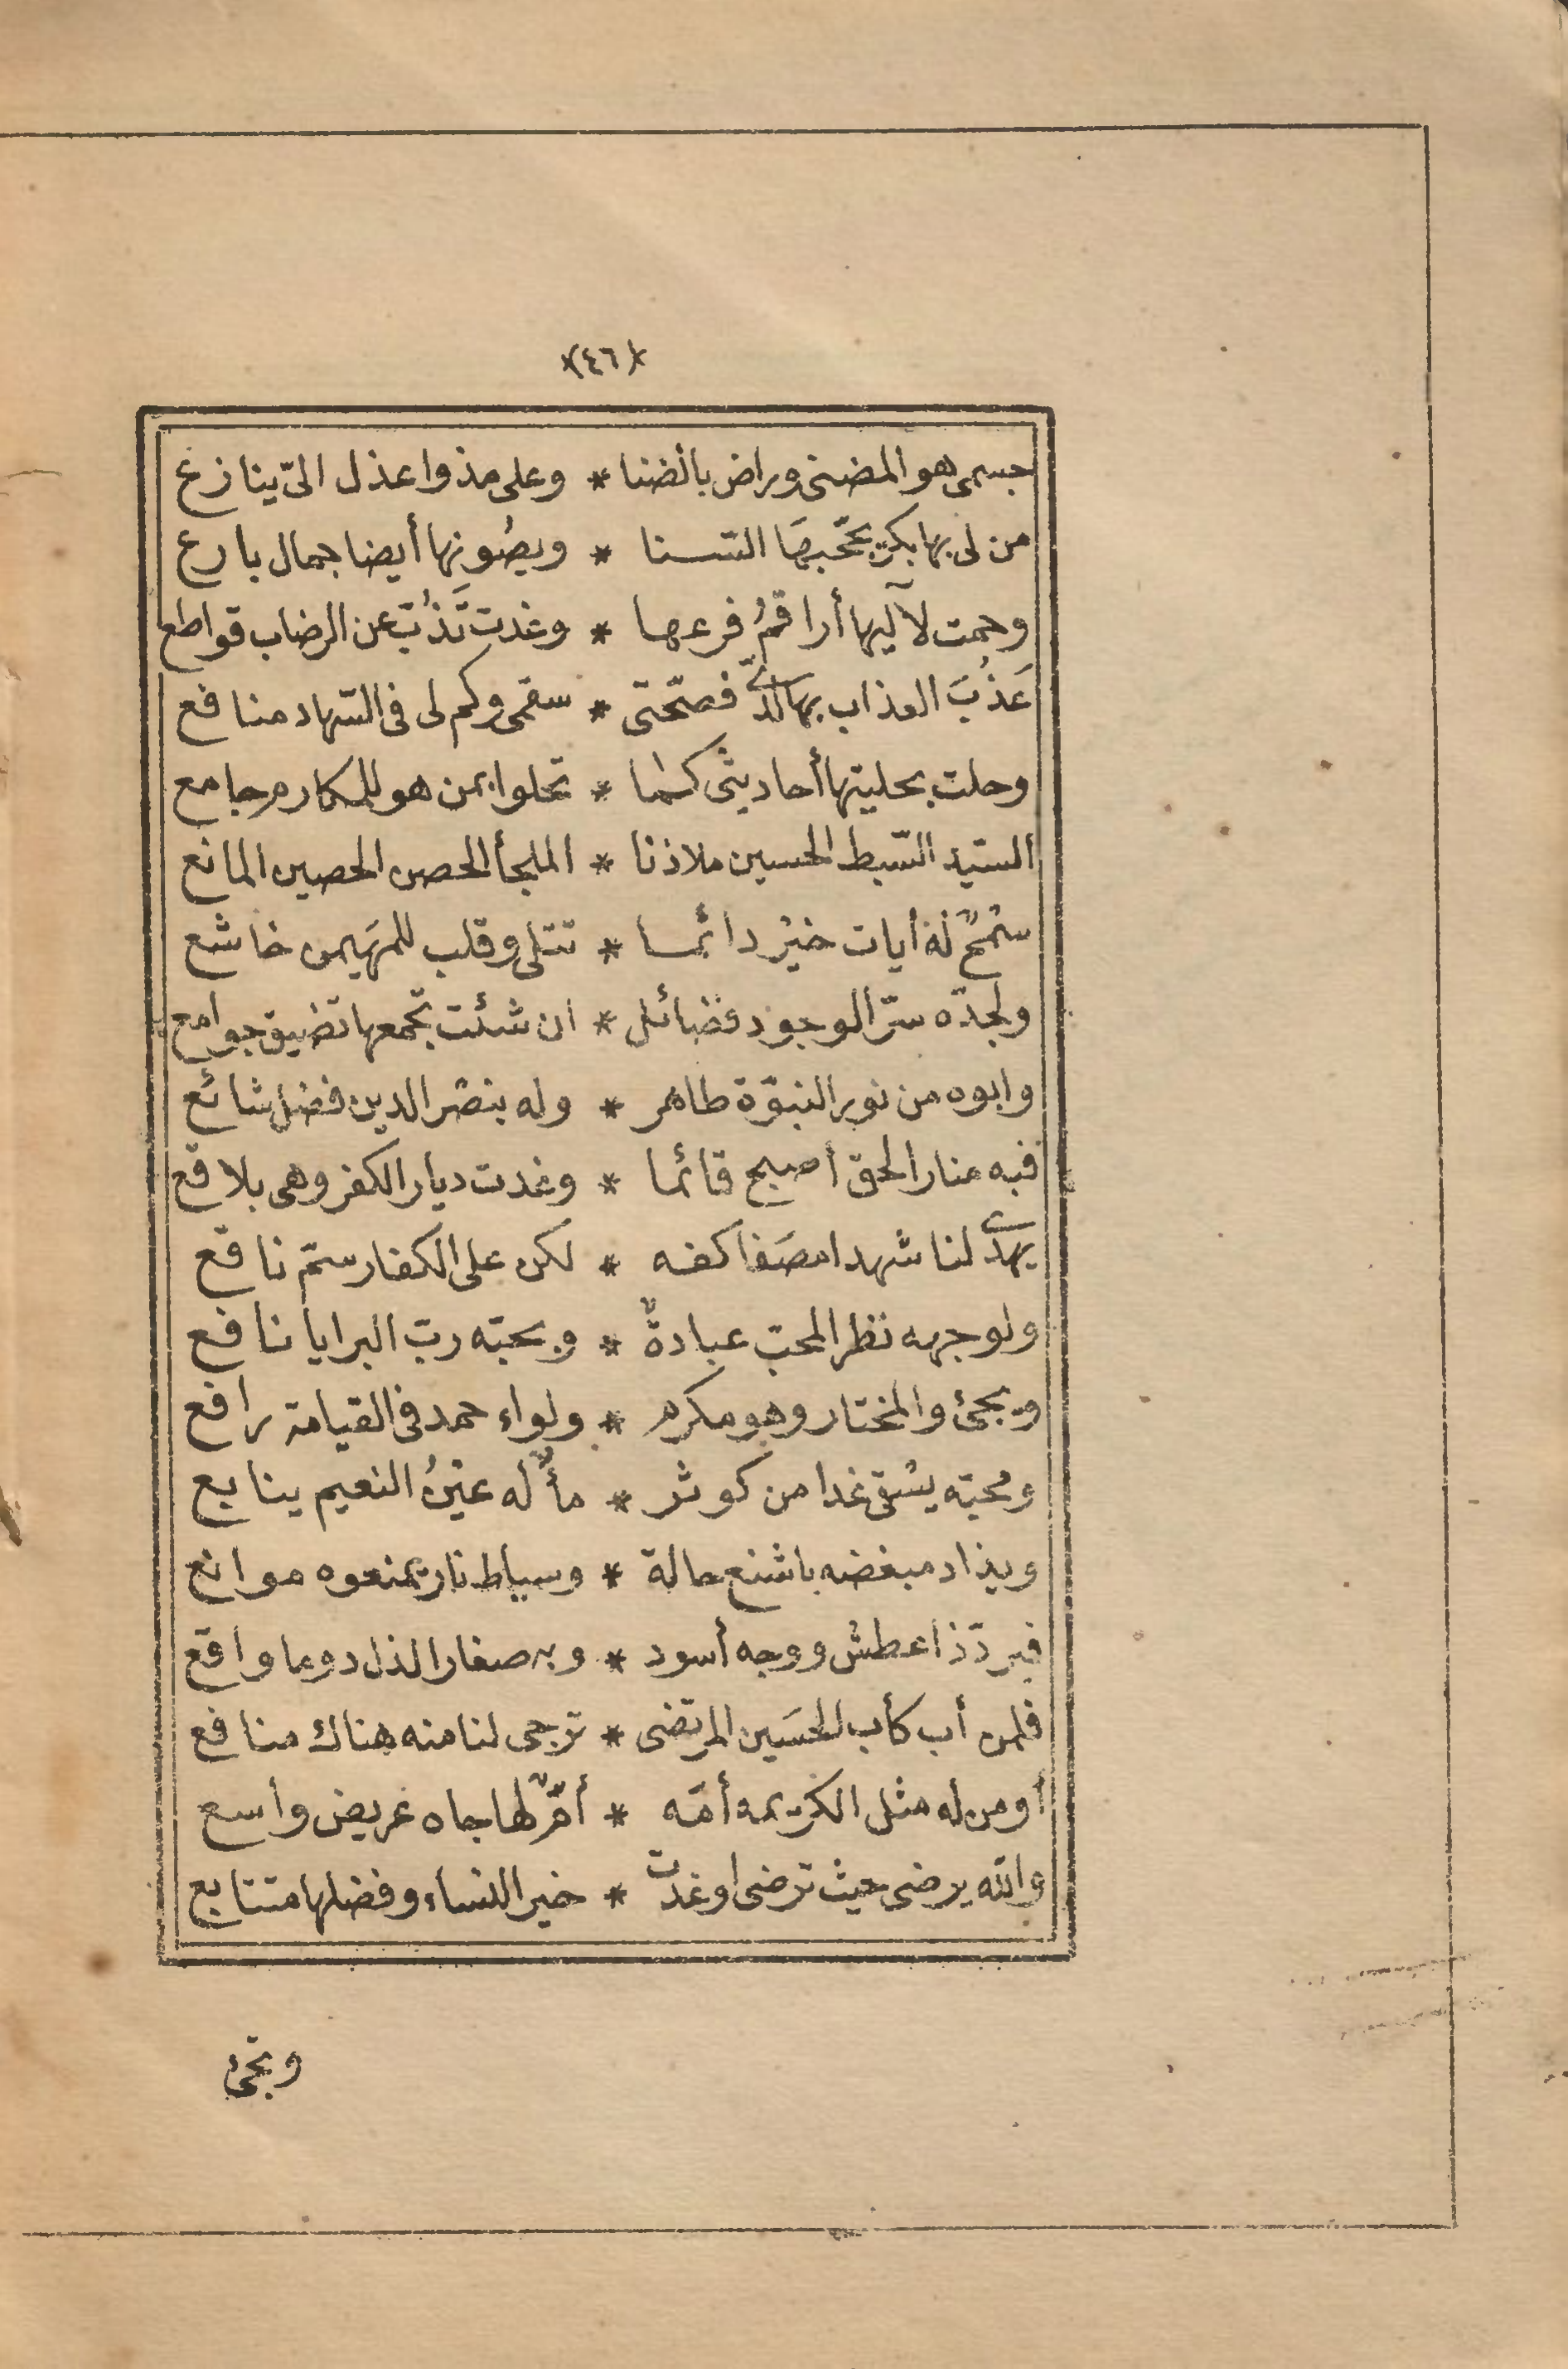 (٤٦)
جسمى هو المضنى وراض بالضنا * وعلى مذ واعذل الىّ ينازع
من لى بها بكر يحّجبهَا السّنا * ويصُونها أيضا جمال بارع
وحمت لآليها أراقمُ فرعها * وغدت تَذُبّ عن الرضاب قواطع
عَذُبَ العذاب بها لدىّ فصّحتى * سقمى وكم لى فى السّهاد منافع
وحلت بحليتها أحاديثى كما * تحلوا بمن هو للمكارم جامع
السّيد السّبط الحسين ملاذنا * الملجأ الحصن الحصين المانع
سَمْحٌ له أيات خيرٍ دائما * تتلى وقلب للمهَيمن خاشع
ولجدّه سرّ الوجود فضائل * ان شئت تجمعها تضيق جوامع
وابوه من نور النبوّة طاهر * وله بنصْر الدين فضل شائع
فبه منار الحق أصبح قائما * وغدت ديار الكفر وهى بلاقع
يهدى لنا شهدا مصَفا كفه * لكن على الكفار سمّ ناقع
ولوجهه نظر المحب عبادةٌ * وبحبّه ربّ البرايا نافع
ويجئ والمختار وهو مكرم * ولواء حمد فى القيامة رافع
ومحبّه يسْقى غدا من كوثر * مأٌ له عيْنُ النعيم ينابع
ويذاد مبغضه باشنع حالة * وسياط نار يمنعوه موانع
فيردّ ذا عطش ووجه أسود * وبه صغار الذل دوما واقع
فلمن أب كأب الحسَين المرتضى * ترجى لنا منه هناك منافع
أو من له مثل الكريمه أمّه * أمٌّ لها جاه عريض واسع
والله يرضى حيث ترضى اوغدت * خير النساء وفضلها متتابع
وتجئ